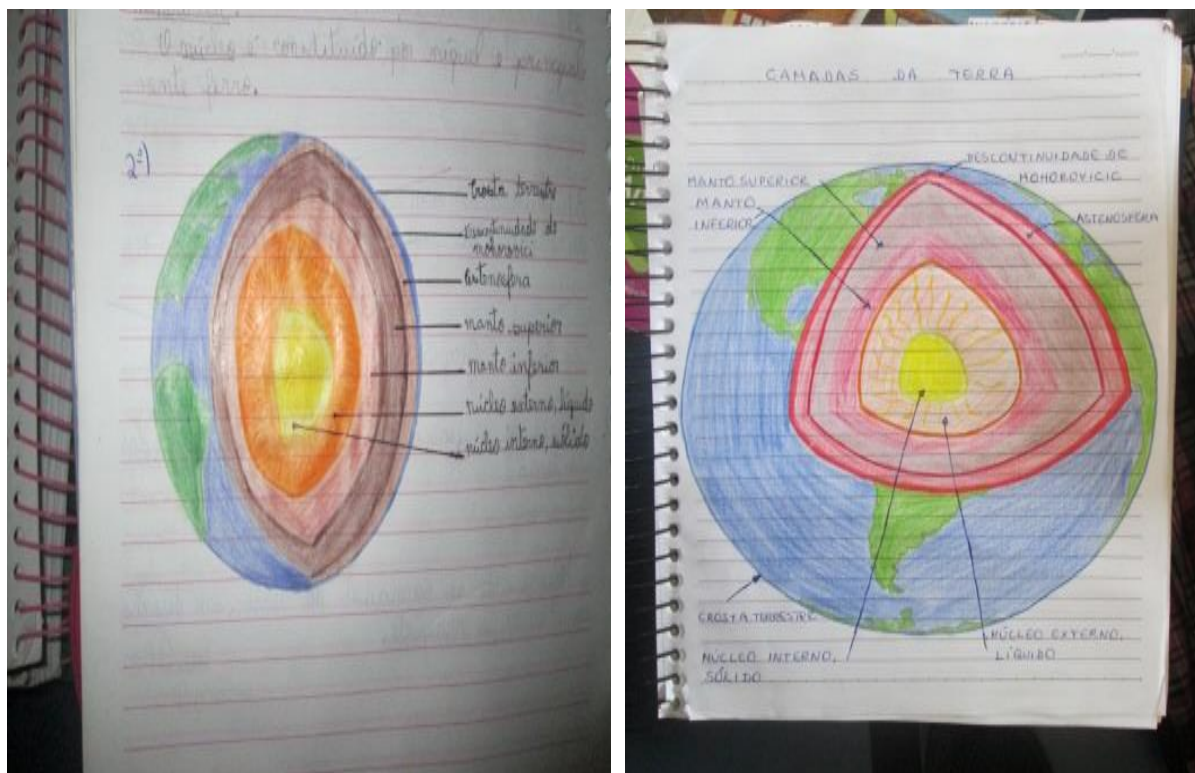 O núcleo é constituído por níquel e principal
mente ferro.
2ª)
Crosta terrestre
descontinuidade de
mohorovici
astenosfera
manto superior
manto inferior
núcleo externo, líquido
núcleo interno, sólido
CAMADAS DA TERRA
DESCONTINUIDADE DE
MOHOROVICIC
MANTO SUPERIOR
MANTO
INFERIOR
ASTENOSFERA
CROSTA TERRESTRE
NÚCLEO INTERNO,
SÓLIDO
NÚCLEO EXTERNO,
LÍQUIDO